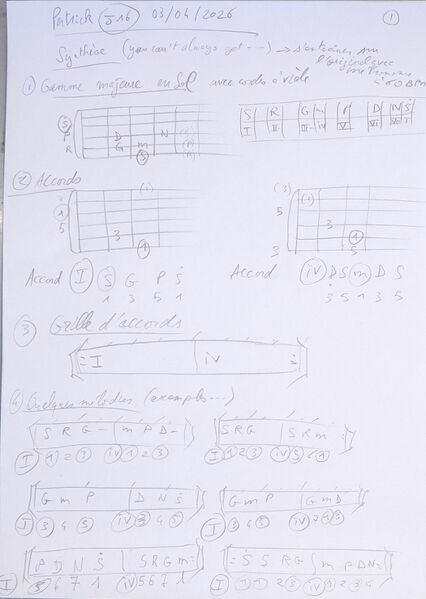 Patrick J16 03/04/2026 1
Synthèse (you can't always get ...) → s'entraîner sur
l'original avec
à 60 BPM
1 Gamme majeure en Sol avec cordes à vide
S R G m P D N Ṡ
I II III iv V VI VII I
D N
R G m
S
2 Accords
(1) (3) (1)
1 5
5 3 3 1
1 3 5
Accord I S G P Ṡ Accord iv D S m D S
1 3 5 1 3 5 1 3 5
3 Grille d'accords
I iv
4 Quelques mélodies (exemples ...)
S R G - m P D - S R G S R m
I 1 2 3 iv 1 2 3 I 1 2 3 iv 5 6 1
G m P D N Ṡ G m P G m D
I 3 4 5 iv 3 4 5 I 3 4 5 iv
P D N Ṡ S R G m S S R G m P D N
I 5 6 7 1 iv 5 6 7 1 I 1 1 2 3 iv 1 2 3 4